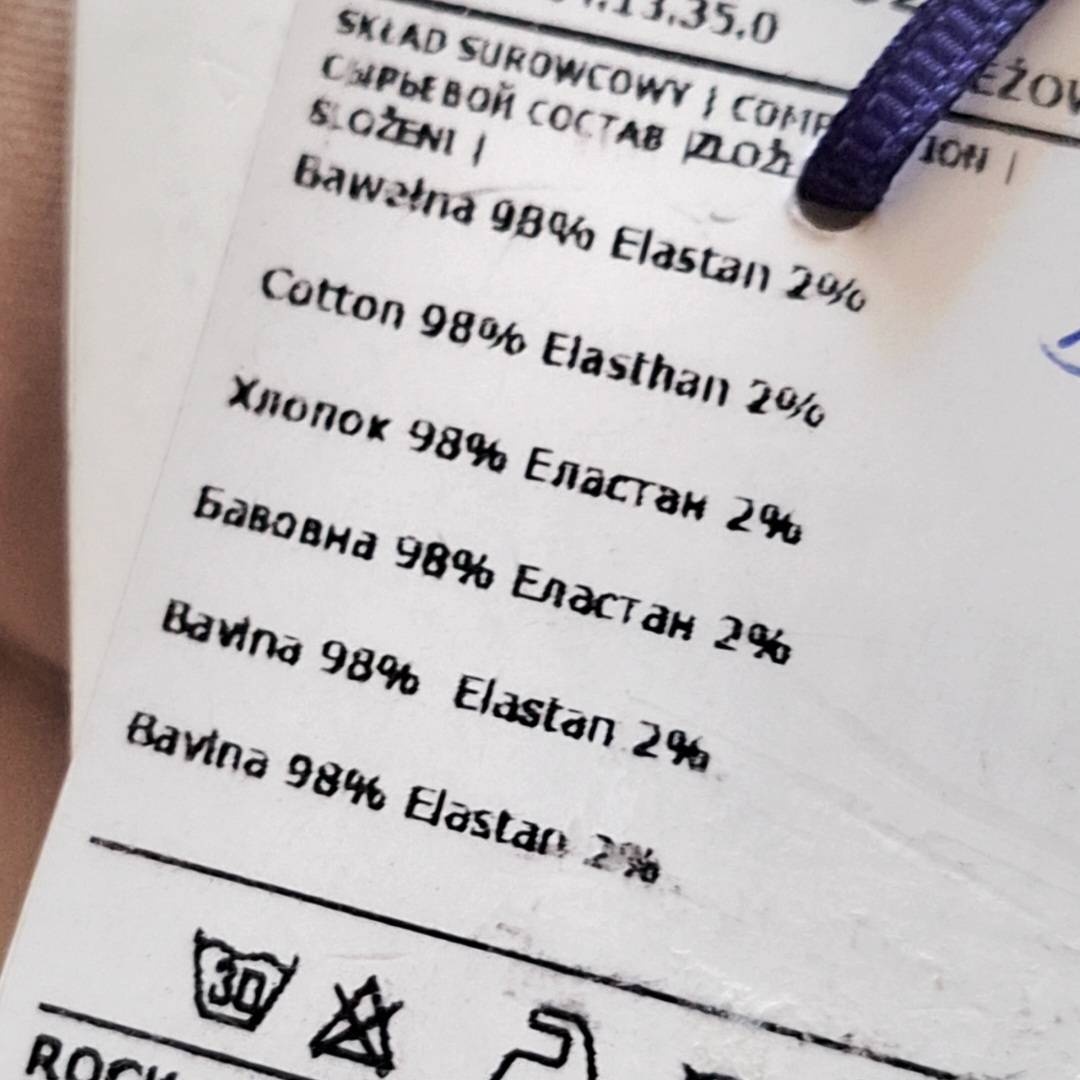 .13.35.0
SKŁAD SUROWCOWY | COMP ION |
СЫРЬЕВОЙ СОСТАВ |
SLOŽENI |
Bawełna 98% Elastan 2%
Cotton 98% Elasthan 2%
Хлопок 98% Еластан 2%
Бавовна 98% Еластан 2%
Bavlna 98% Elastan 2%
Bavlna 98% Elastan 2%
30
ROCK